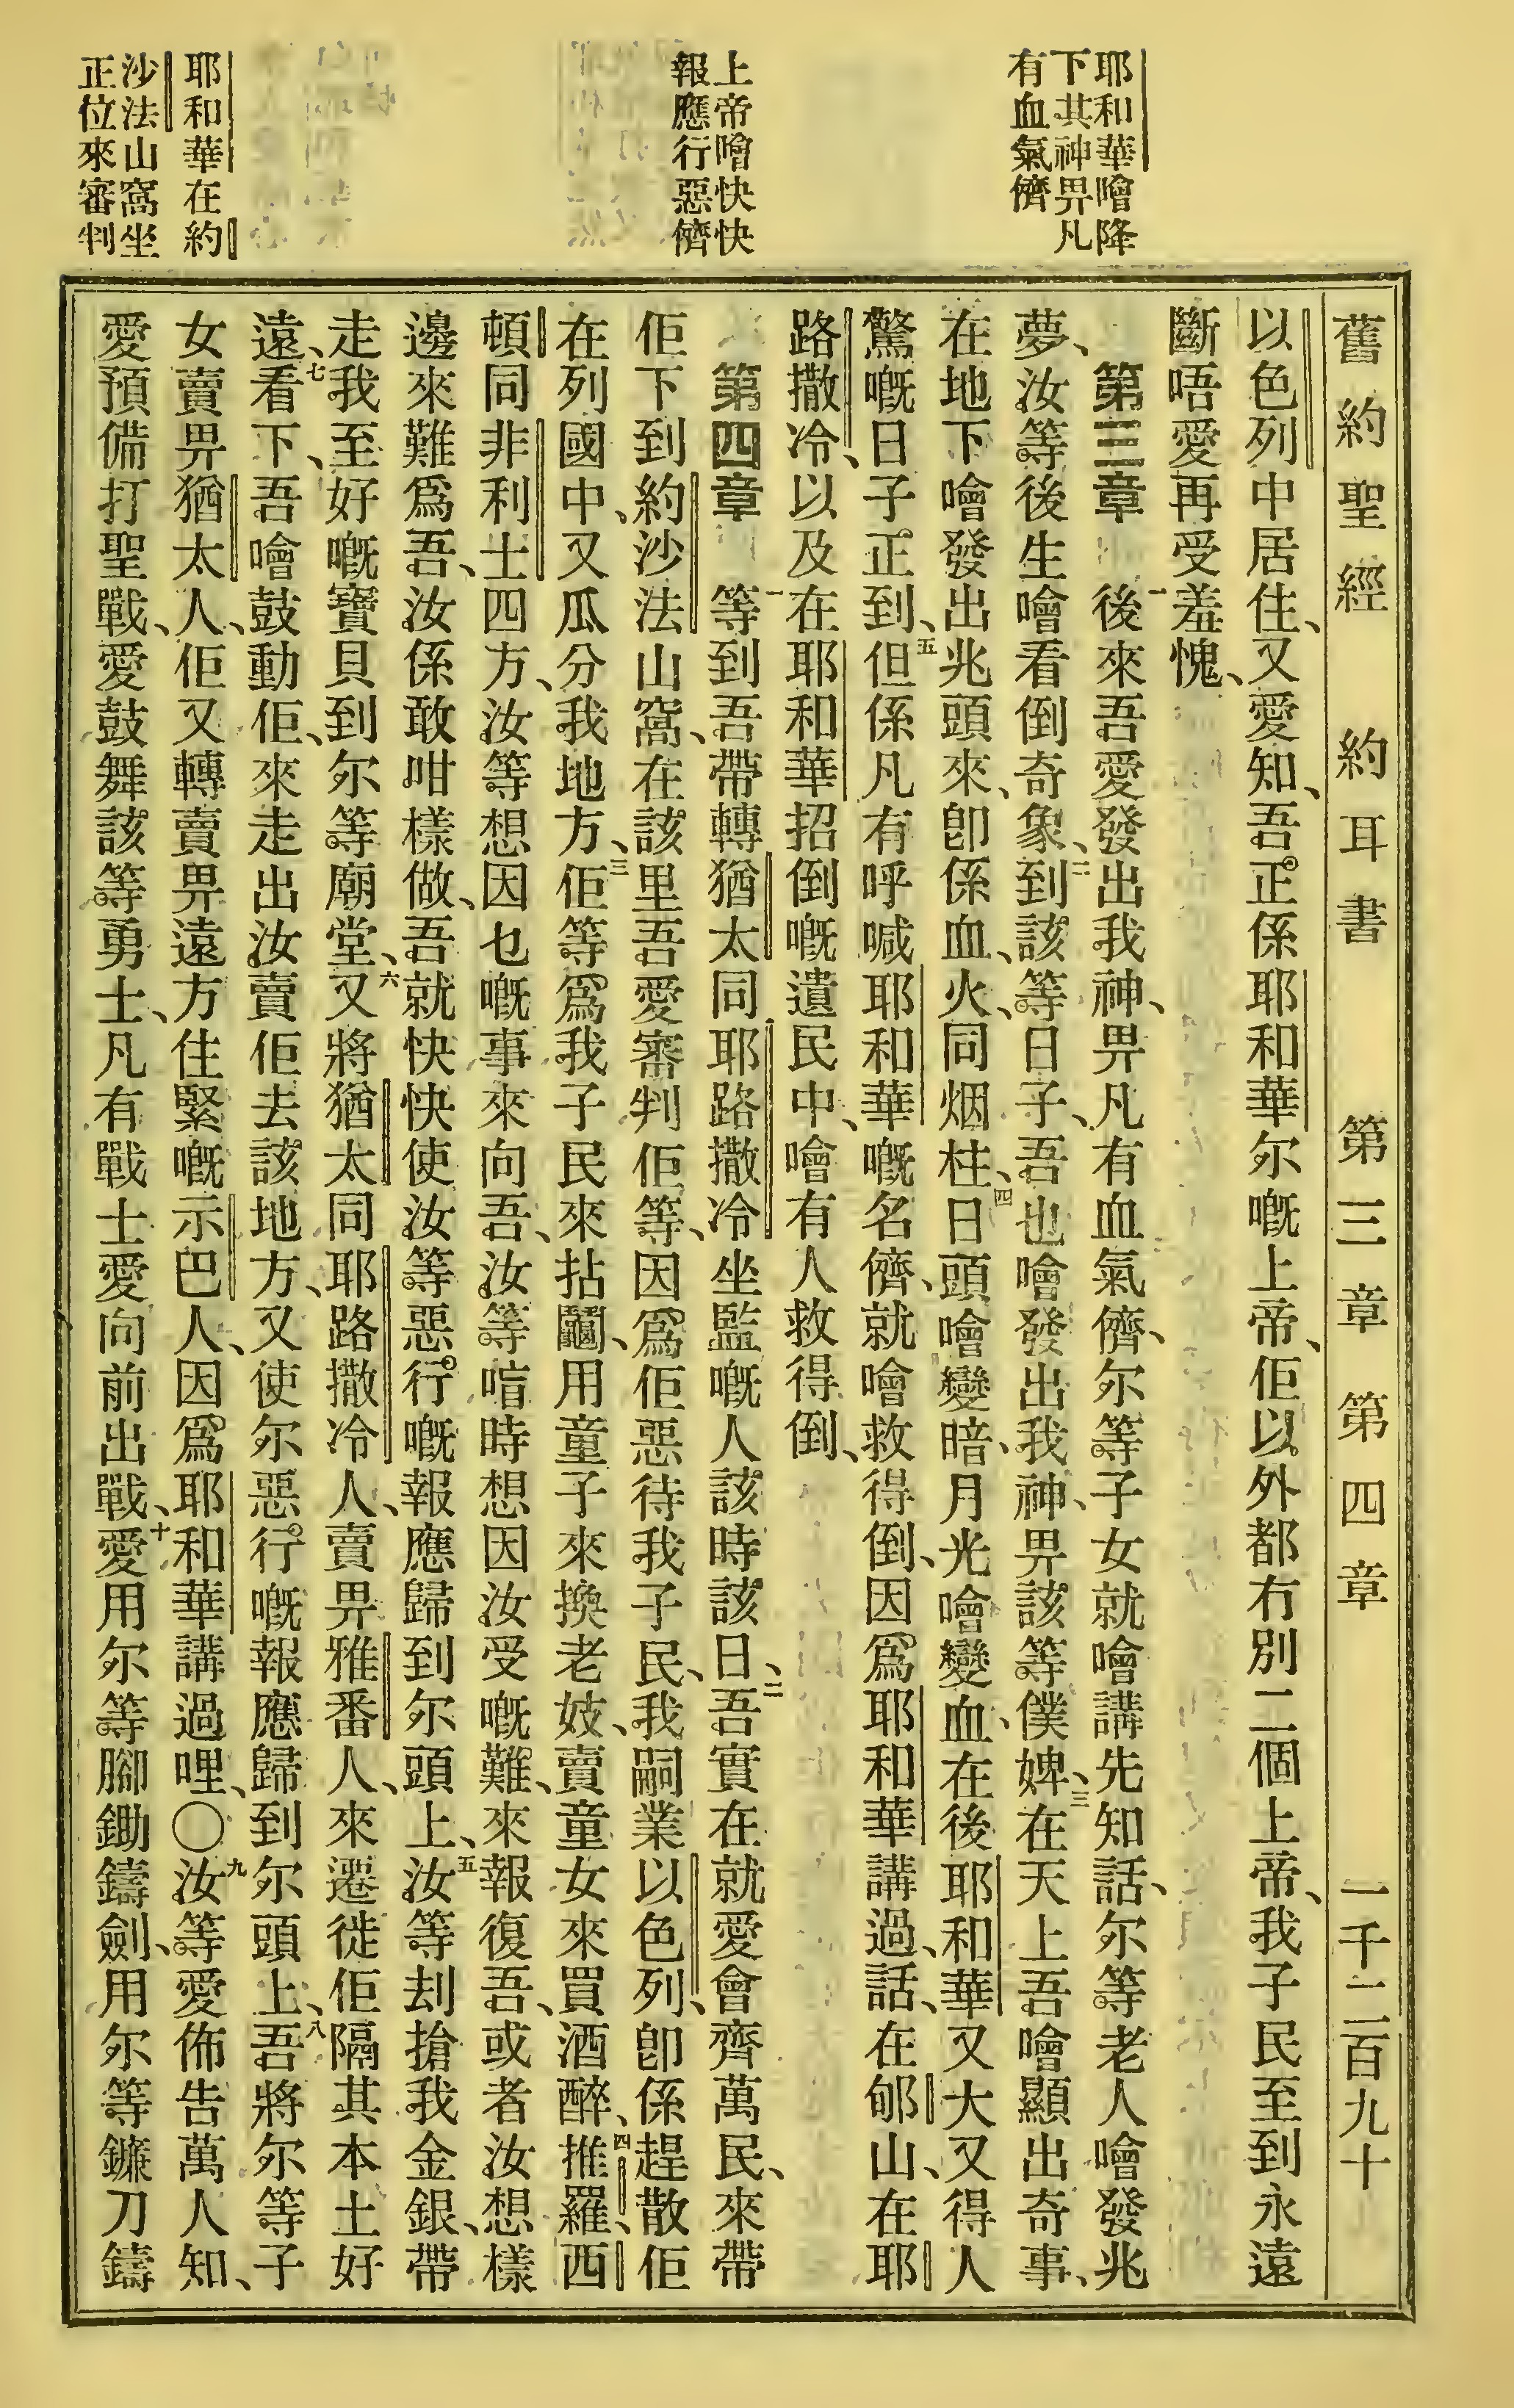 耶和華噲降
下其神畀凡
有血氣儕
上帝噲快快
報應行惡儕
耶和華在約
沙法山窩坐
正位來審判
舊約聖經　約耳書　第三章　第四章　一千二百九十
以色列中居住、又愛知、吾正係耶和華尔嘅上帝、佢以外都冇別二個上帝、我子民至到永遠
斷唔愛再受羞愧、
第三章　一後來吾愛發出我神、畀凡有血氣儕、尔等子女就噲講先知話、尔等老人噲發兆
夢、汝等後生噲看倒奇象、二到該等日子、吾也噲發出我神、畀該等僕婢、三在天上吾噲顯出奇事、
在地下噲發出兆頭來、卽係血、火、同烟柱、四日頭噲變暗、月光噲變血、在後耶和華又大又得人
驚嘅日子正到、五但係凡有呼喊耶和華嘅名儕、就噲救得倒、因爲耶和華講過、話、在郇山、在耶
路撒冷、以及在耶和華招倒嘅遺民中、噲有人救得倒、
第四章　一等到吾帶轉猶太同耶路撒冷坐監嘅人該時該日、二吾實在就愛會齊萬民、來帶
佢下到約沙法山窩、在該里吾愛審判佢等、因爲佢惡待我子民、我嗣業以色列、卽係趕散佢
在列國中、又瓜分我地方、三佢等爲我子民來拈鬮、用童子來換老妓、賣童女來買酒醉、四推羅、西
頓同非利士四方、汝等想因乜嘅事來向吾、汝等喑時想因汝受嘅難、來報復吾、或者汝想樣
邊來難爲吾、汝係敢咁樣做、吾就快快使汝等惡行嘅報應歸到尔頭上、五汝等刦搶我金銀、帶
走我至好嘅寶貝到尔等廟堂、六又將猶太同耶路撒冷人、賣畀雅番人、來遷徙佢隔其本土好
遠、七看下、吾噲鼓動佢、來走出汝賣佢去該地方、又使尔惡行嘅報應歸到尔頭上、八吾將尔等子
女賣畀猶太人、佢又轉賣畀遠方住緊嘅示巴人、因爲耶和華講過哩、〇九汝等愛佈告萬人知、
愛預備打聖戰、愛鼓舞該等勇士、凡有戰士愛向前出戰、十愛用尔等腳鋤鑄劍、用尔等鐮刀鑄